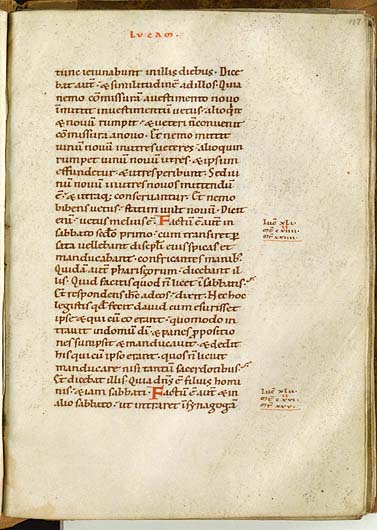 LVCAM.
137
tunc ieiunabunt in illis diebus. Dice
bat autē & similitudinē ad illos. Quia
nemo cōmissurā a uestimento nouo
inmittit in uestimentū uetus. alioq̇n
& nouū rumpit. & ueteri ñ conuenit
cōmissura a nouo. Et nemo mittit
uinū nouū in utres ueteres. alioquin
rumpet uinū nouū utres. & ipsum
effundetur. & utres peribunt. Sed ui
nū nouū in utres nouos mittendū
ē. & utraq; conseruantur. Et nemo
bibens uetus. statim uult nouū. Dicit
enī. uetus melius ē. Factū ē autē in
sabbato scdo primo. cum transiret p
sata uellebant discipli eius spicas et
manducabant. confricantes manib;
Quidā autē pharisęorum. dicebant il
lis. Quid facitis quod ñ licet in sabbatis.
Et respondens ihc ad eos. dixit. Nec hoc
legistis qd fecit dauid cum esurisset
ipse & qui cū eo erant. quomodo in
trauit in domum dī. & panes ppositio
nes sumpsit & manducauit. & dedit
his qui cū ipso erant. quos ñ licuit
manducare nisi tantū sacerdotibus.
Et dicebat illis. Quia dns ē filius homi
nis. & iam sabbati. Factū ē autē & in
alio sabbato. ut intraret in synagogā
luc XLI.
mr XXIIII.
luc XLII.
mr XXV.